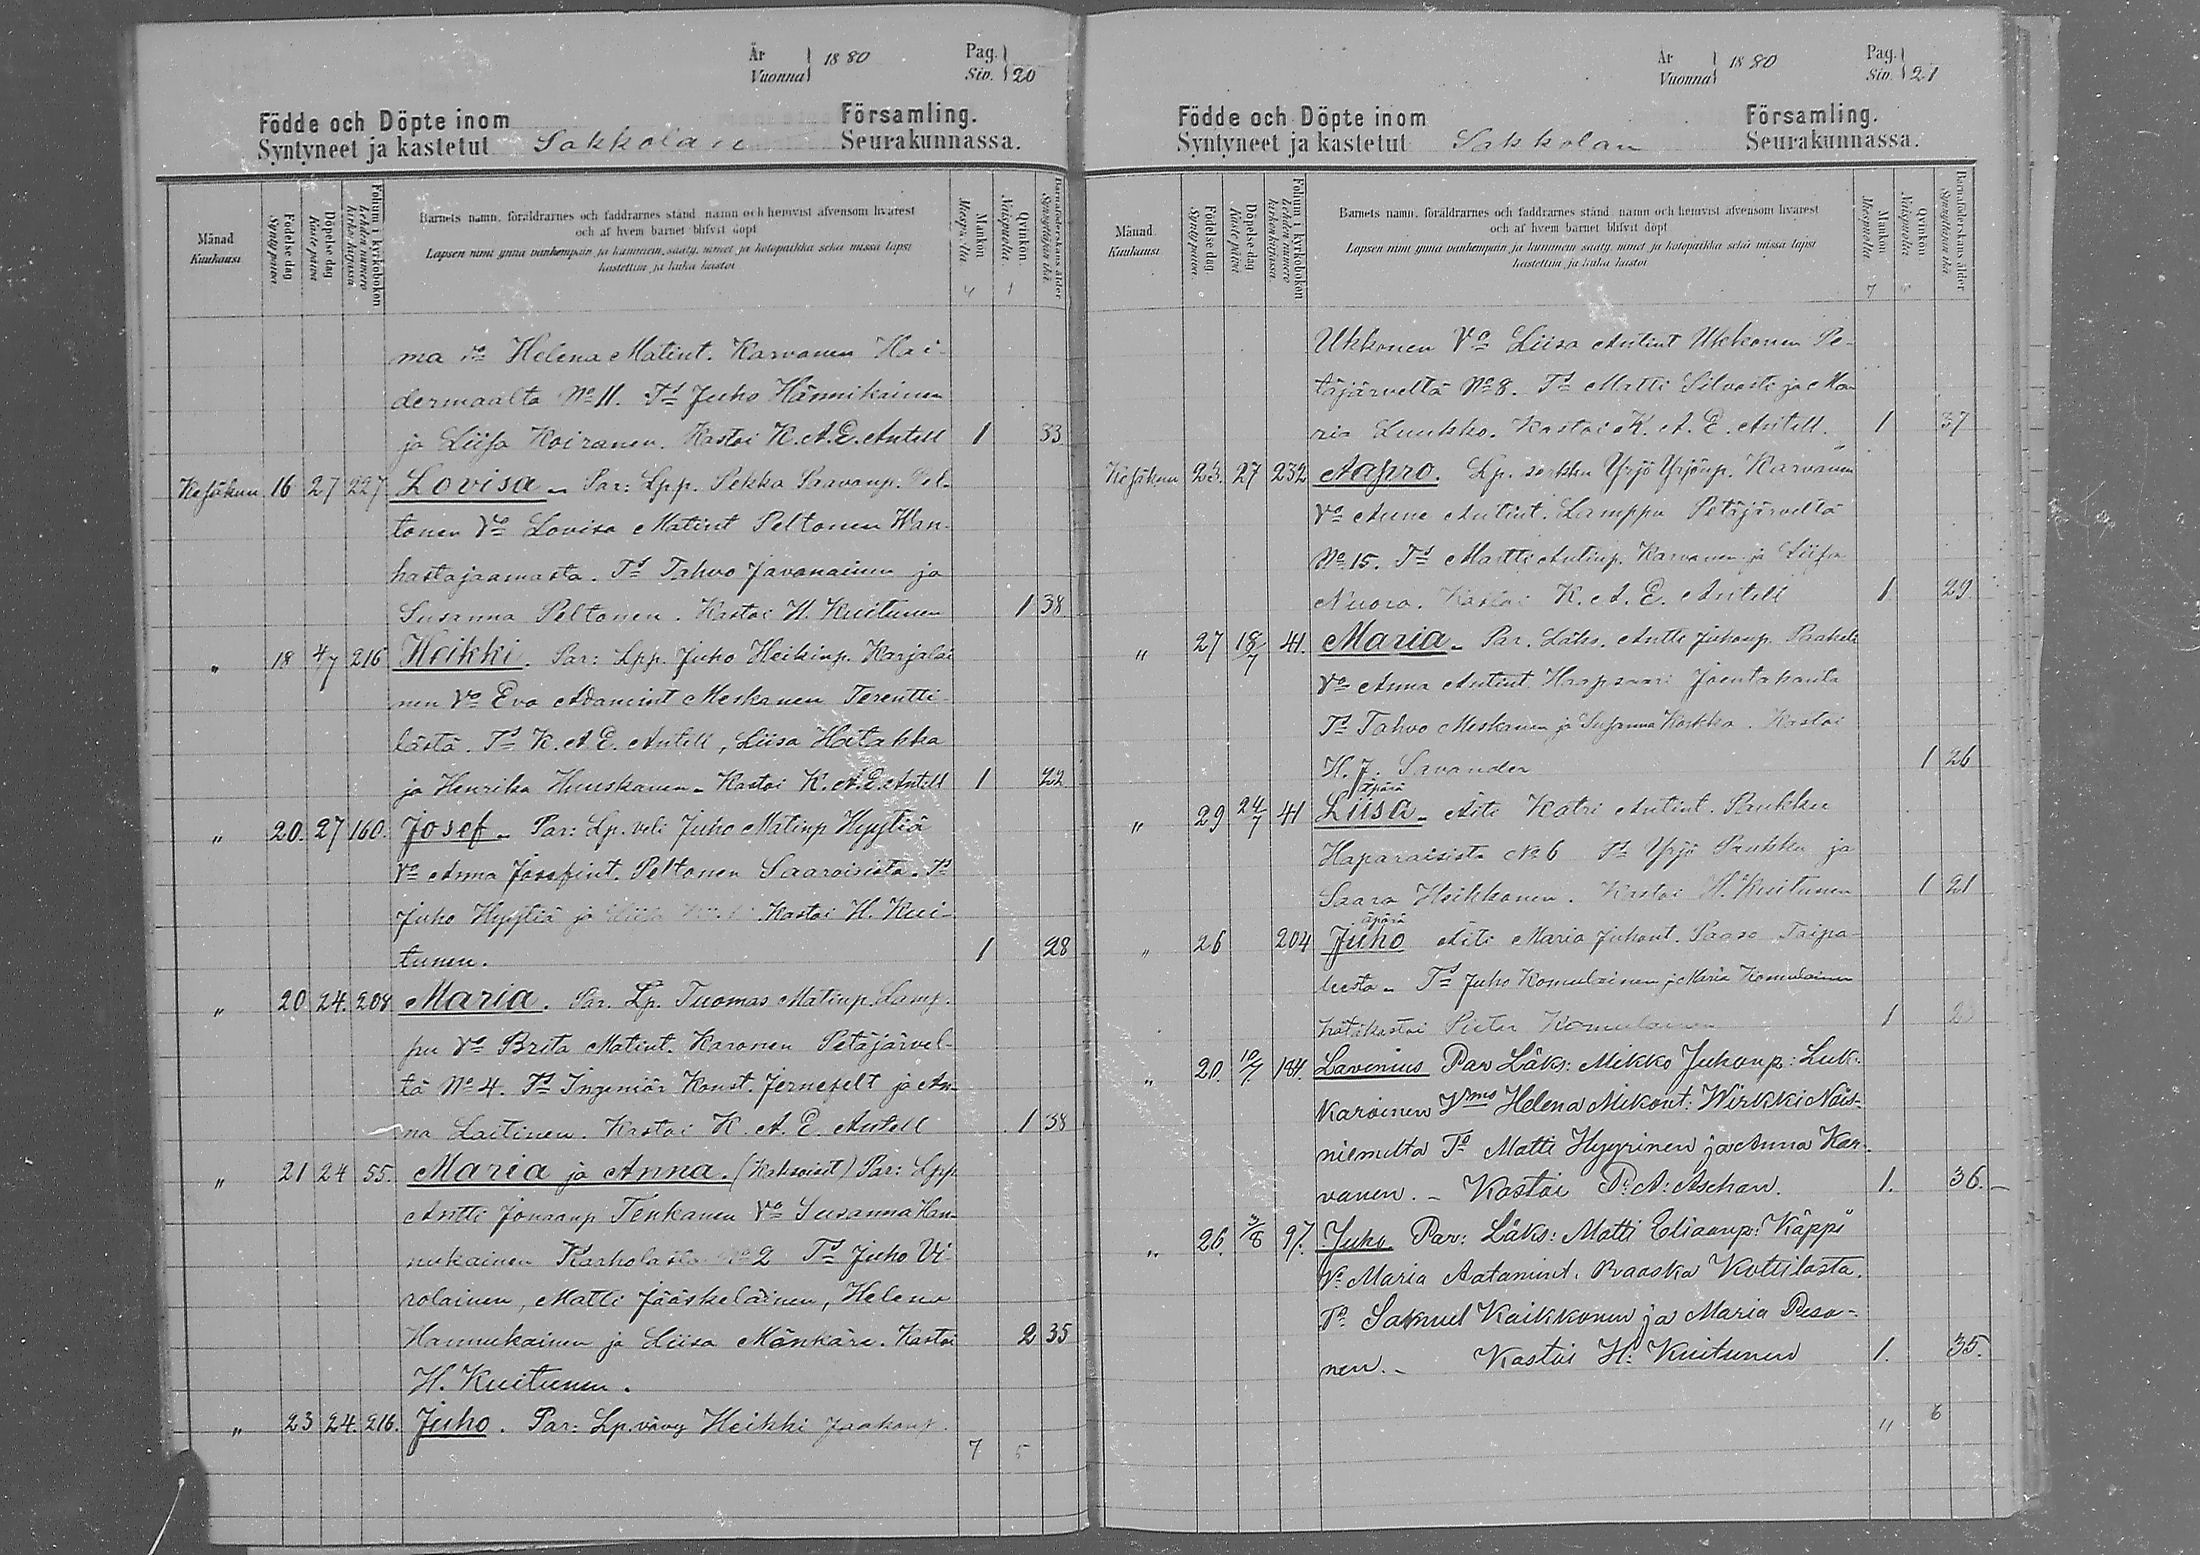 År
Vuonna 1880
Pag.
Siv. 20
Födde och Döpte inom Församling.
Syntyneet ja kastetut Sakkolan Seurakunnassa.
Månad
Kuukausi
Födelsedag
Syntypäivä
Döpelsedag
Kastepäivä
Folium i kyrkoboken
Lehden numero kirkonkirjassa
Barnets namn, föräldrarnes och faddrarnes stånd, namn och hemvist äfvensom hvarest
och af hvem barnet blifvit döpt
Lapsen nimi ynnä vanhempain ja kummein sääty, nimet ja kotopaikka sekä missä lapsi
kastettiin ja kuka kastoi
Mankön
Miespuolta
Qvinkön
Naispuolta
Barnaföderskans ålder
Synnyttäjän ikä
4 1
ma Vo Helena Matint. Karvanen Hai-
dermaalta No 11. Td Juho Hännikäinen
ja Liisa Koiranen. Kastoi K. A. E. Antell 1 33
Kesäkuu 16 27 227 Lovisa - Par: Lpp. Pekka Paavonp. Pel-
tonen Vo Lovisa Matint Peltonen Wan-
hastajaamasta. Td Tahvo Javanainen ja
Susanna Peltonen. Kastoi H. Kuitunen 1 38
" 18 4/7 216 Heikki. Par: Lpp. Juho Heikinp. Karjalai
nen Vo Eva Adamint Meskanen Terentti-
lästä. Td K. A. E. Antell, Liisa Hatakka
ja Henrika Huuskanen - Kastoi K. A. E. Antell 1 22
" 20. 27 160. Josef - Par: Lp. veli Juho Matinp Hyytiä
Vo Anna Josefint. Peltonen Saaroisista. Td
Juho Hyytiä ja Kastoi H. Kui-
tunen. 1 28
" 20 24. 208 Maria. Par. Lp. Tuomas Matinp. Lamp-
pu Vo Brita Matint. Karonen Petäjärvel-
tä No 4. Td Ingeniör Konst. Jernefelt ja An-
na Laitinen. Kastoi K. A. E. Antell 1 38
" 21 24 55. Maria ja Anna. (Kaksoiset) Par: Lpp
Antti Jonaanp Tenkanen Vo Susanna Han-
nukainen Karholasta No 2 Td Juho Vi-
rolainen, Matti Jääskeläinen, Helena
Hannukainen ja Liisa Mänkäre. Kastoi 2 35
H. Kuitunen.
" 23 24. 216. Juho. Par: Lp. vävy Heikki Jaakonp.
7 5
År
Vuonna 1880
Pag.
Siv. 21
Födde och Döpte inom Församling.
Syntyneet ja kastetut Sakkolan Seurakunnassa.
Månad
Kuukausi
Födelsedag
Syntypäivä
Döpelsedag
Kastepäivä
Folium i kyrkoboken
Lehden numero kirkonkirjassa
Barnets namn, föräldrarnes och faddrarnes stånd, namn och hemvist äfvensom hvarest
och af hvem barnet blifvit döpt
Lapsen nimi ynnä vanhempain ja kummein sääty, nimet ja kotopaikka sekä missä lapsi
kastettiin ja kuka kastoi
Mankön
Miespuolta
Qvinkön
Naispuolta
Barnaföderskans ålder
Synnyttäjän ikä
7
Ukkonen Vo Liisa Antint Ukkonen Pe-
täjärveltä No 8. Td Matti Silvasti ja Ma-
ria Luukko. Kastoi K. A. E. Antell. 1 37
Kesäkuu 23. 27 232 Aapro. Lp. serkku Yrjö Yrjönp. Karvanen
Vo Anne Antint. Lamppu Petäjärveltä
No 15. Td Martti Antinp. Karvanen ja Liisa
Nuora. Kastoi K. A. E. Antell 1 29
" 27 18/7 41. Maria - Par. Läks. Antti Juhonp. Paakeli
Vo Anna Antint. Haapsaari Joentakaata
Td Tahvo Meskanen ja Susanna Korkka. Kastoi
H. J. Savander 1 26
äpärä
" 29 24/7 41 Liisa - Äiti Katri Antint. Paukku
Haparaisista No 6 Td Yrjö Paukku ja
Saara Heikkonen. Kastoi H. Kuitunen 1 21
äpärä
" 26 204 Juho Äiti Maria Juhont. Paaso Taipa-
leesta - Td Juho Komulainen ja Maria Komulainen
hätäkastoi Pieter Komulainen 1
" 20. 10/7. 184. Lavenius Par Läks: Mikko Juhonp: Luk-
karoinen Vmo Helena Mikont: Wirkki Nois-
niemeltä Td Matti Hyyrinen ja Anna Kar-
vanen. - Kastoi P. A: Aschan. 1. 36.
" 26. 3/8 97. Juho Par: Läks: Matti Eliaanp: Käppi
Vo Maria Aatamint. Praaska Kottilasta.
Td Samuel Kaikkonen ja Maria Peso-
nen. - Kastoi H: Kuitunen 1. 35.
11 6